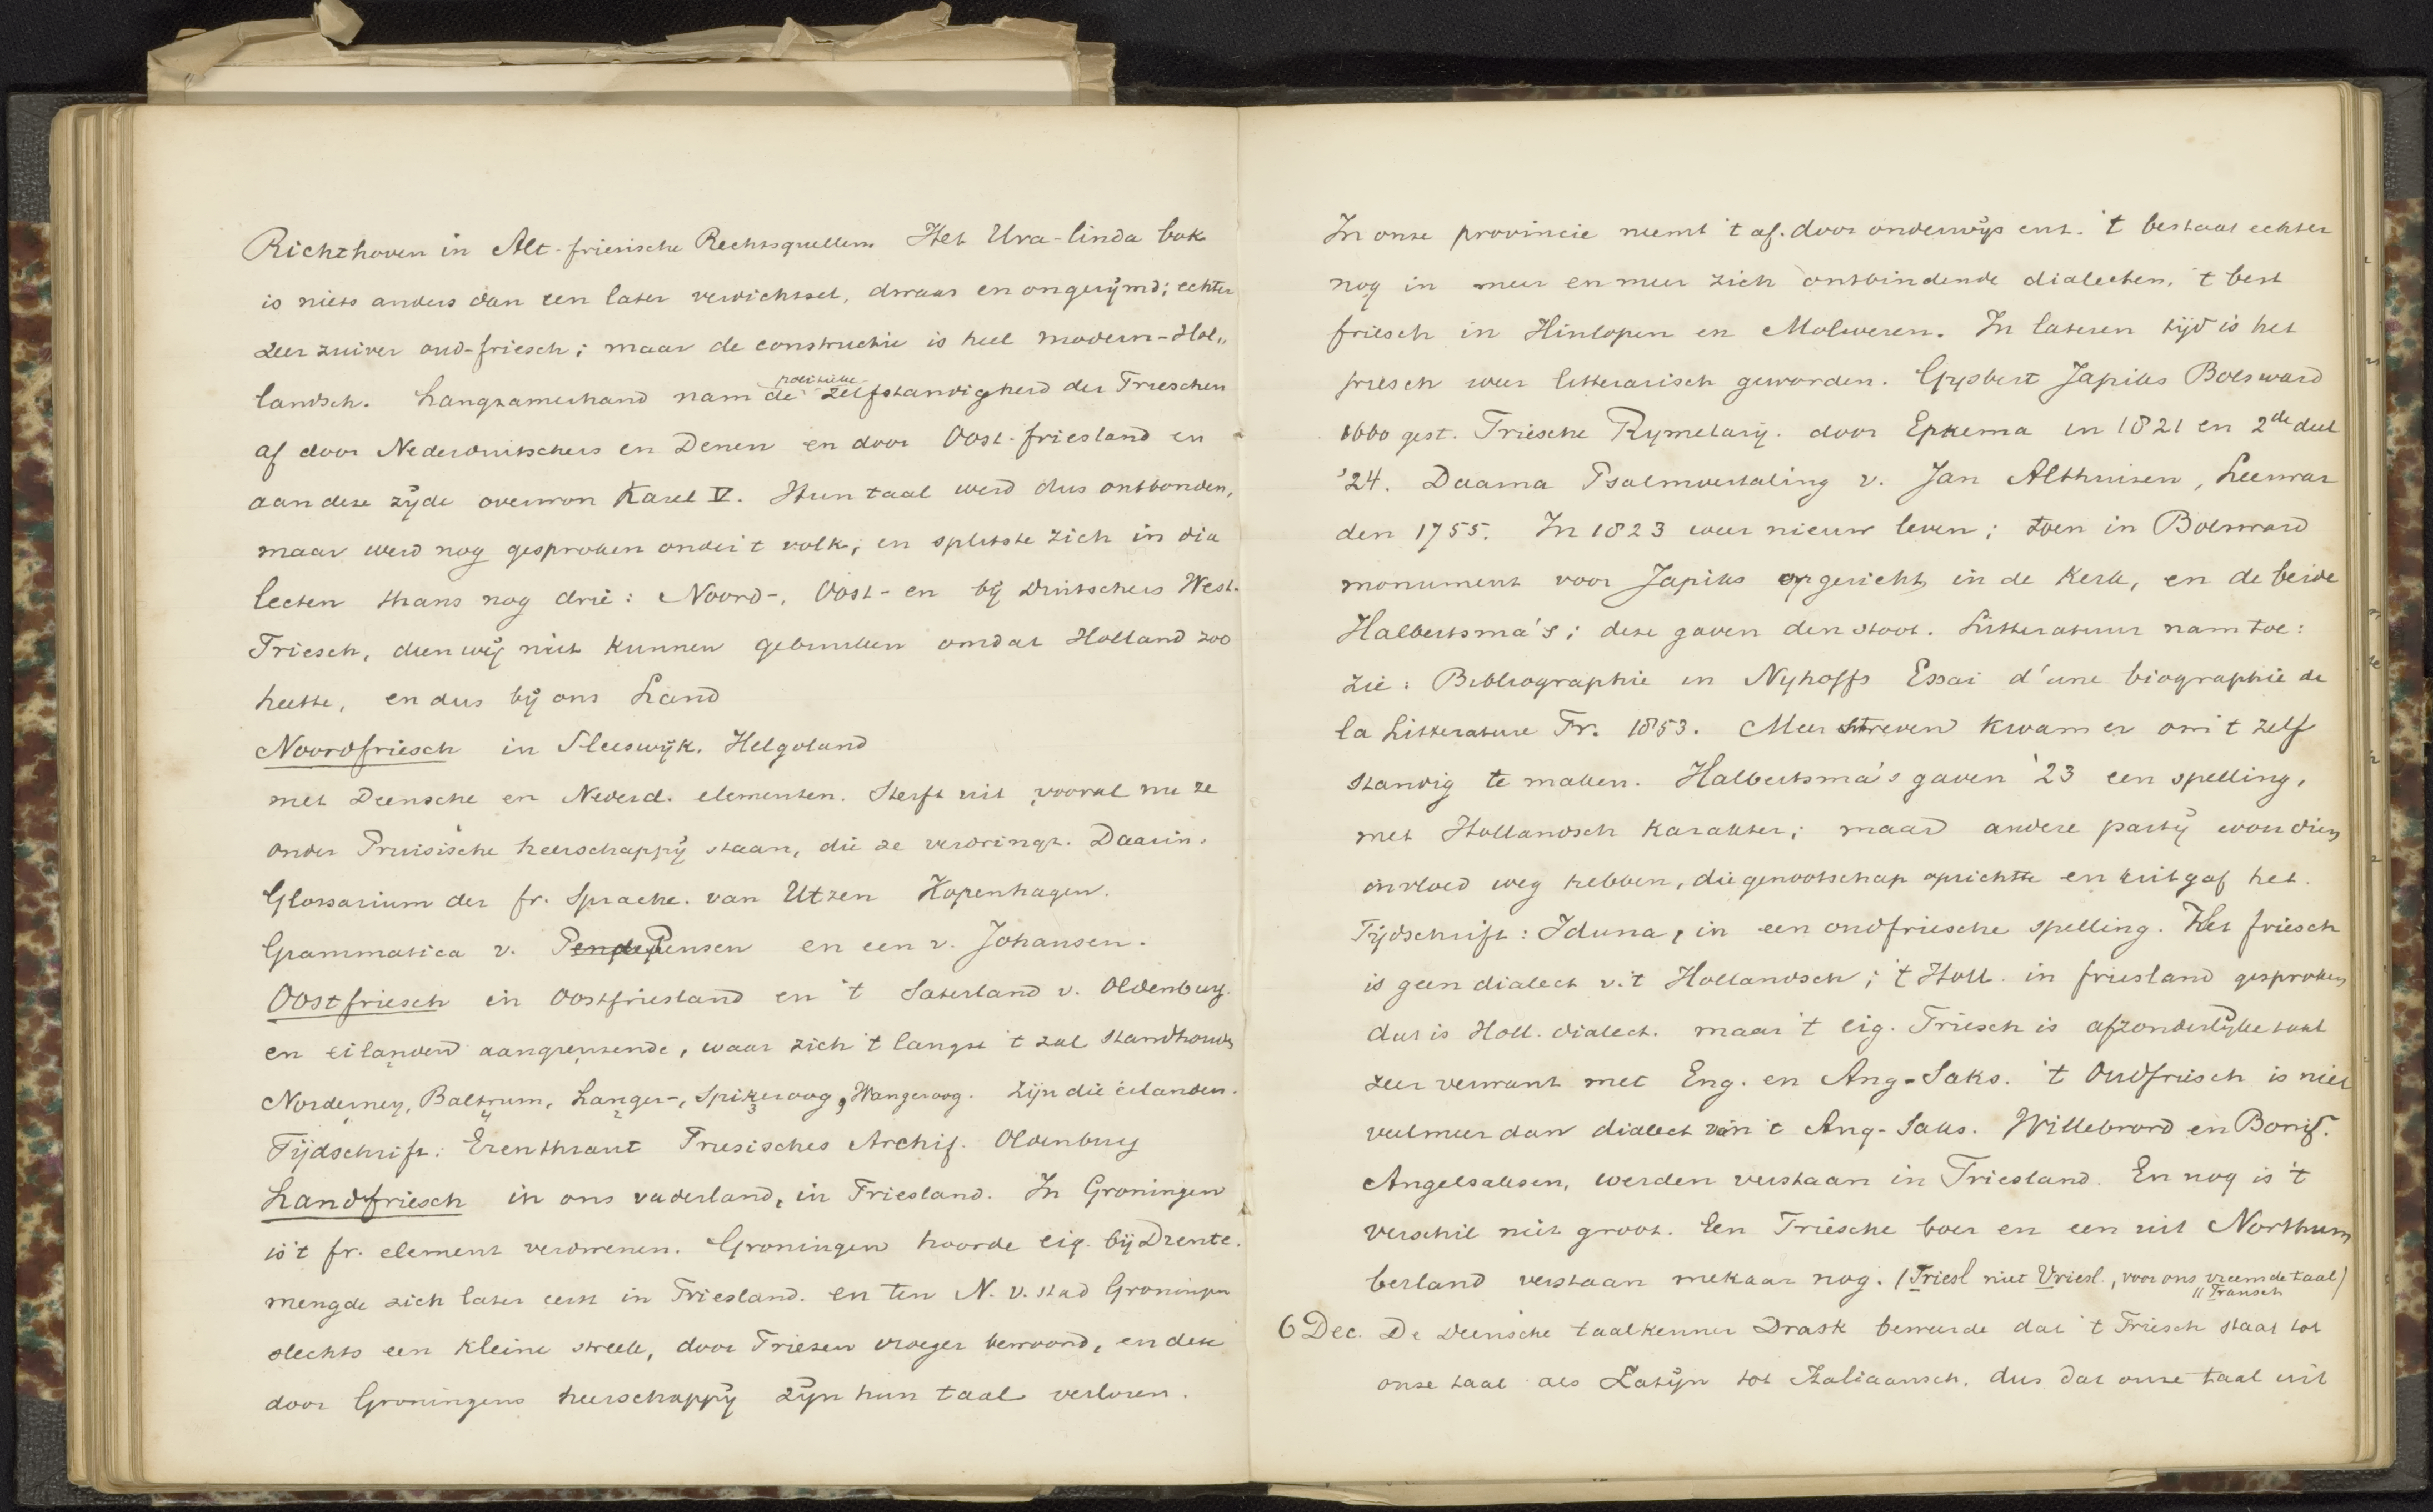 Richthoven in Alt-friesische Rechtsquellen. Het Ura-linda bok
is niets anders dan een later verdichtsel, dwaas en ongerijmd; echter
zeer zuiver oud-friesch; maar de constructie is heel modern-Hol„
landsch. Langzamerhand nam de politieke zelfstandigheid der Frieschen
af door Nederduitschers en Denen en door Oost-friesland en
aan deze zijde overwon Karel V. Hun taal werd dus ontbonden,
maar werd nog gesproken onder 't volk, en splitste zich in dia
lecten thans nog drie: Noord-, Oost- en bij Duitschers West-
Friesch, dien wij niet kunnen gebruiken omdat Holland zoo
heette, en dus bij ons Land
Noordfriesch in Sleeswijk, Helgoland
met Deensche en Nederd. elementen. Sterft uit vooral nu ze
onder Pruisische heerschappij staan, die ze verdringt. Daarin.
Glossarium der fr. Sprache. van Utzen Kopenhagen.
Grammatica v. Pensen en een v. Johansen.
Oostfriesch in Oostfriesland en 't Saterland v. Oldenburg.
en eilanden aangrenzende, waar zich 't langst 't zal standhouden
Norderney, Baltrum, Langer-, Spikeroog, Wangeroog. Zijn die eilanden.
Tijdschrift: Erenthraut Friesisches Archif. Oldenburg
Landfriesch in ons vaderland, in Friesland. In Groningen
is 't fr. element verdwenen. Groningen hoorde eig. bij Drente.
mengde zich later eerst in Friesland. en ten N. v. stad Groningen
slechts een kleine streek, door Friezen vroeger bewoond, en deze
door Groningens heerschappij zijn hun taal verloren.
In onze provincie neemt 't af. door onderwijs enz. 't bestaat echter
nog in meer en meer zich ontbindende dialecten. 't best
friesch in Hinlopen en Molweren. In lateren tijd is het
friesch weer litterarisch geworden. Gysbert Japiks Bolsward
1660 gest. Friesche Rymelarij. door Epkema in 1821 en 2de deel
'24. Daarna Psalmvertaling v. Jan Althuisen, Leeuwar
den 1755. In 1823 weer nieuw leven; toen in Bolsward
monument voor Japiks opgericht in de Kerk, en de beide
Halbertsma's; deze gaven den stoot. Litteratuur nam toe:
zie: Bibliographie in Nyhoffs Essai d'une biographie de
la Litterature Fr. 1853. Meer streven kwam er om 't zelf
standig te maken. Halbertsma's gaven '23 een spelling,
met Hollandsch karakter; maar andere partij wou dien
invloed weg hebben, die genootschap oprichtte en uitgaf het
Tijdschrift: Iduna, in een oudfriesche spelling. Het friesch
is geen dialect v. 't Hollandsch; 't Holl. in friesland gesproken
dat is Holl. dialect. maar 't eig. Friesch is afzonderlijke taal
zeer verwant met Eng. en Ang-Saks. 't Oudfriesch is niet
veel meer dan dialect van 't Ang-Saks. Willebrord en Bonif.
Angelsaksen, werden verstaan in Friesland. En nog is 't
verschil niet groot. Een Friesche boer en een uit Northum
berland verstaan mekaar nog. (Friesl niet Vriesl., voor ons vreemde taal)
" Fransch
6 Dec. De Deensche taalkenner Drask beweerde dat 't Friesch staat tot
onze taal als Latijn tot Italiaansch. dus dat onze taal uit